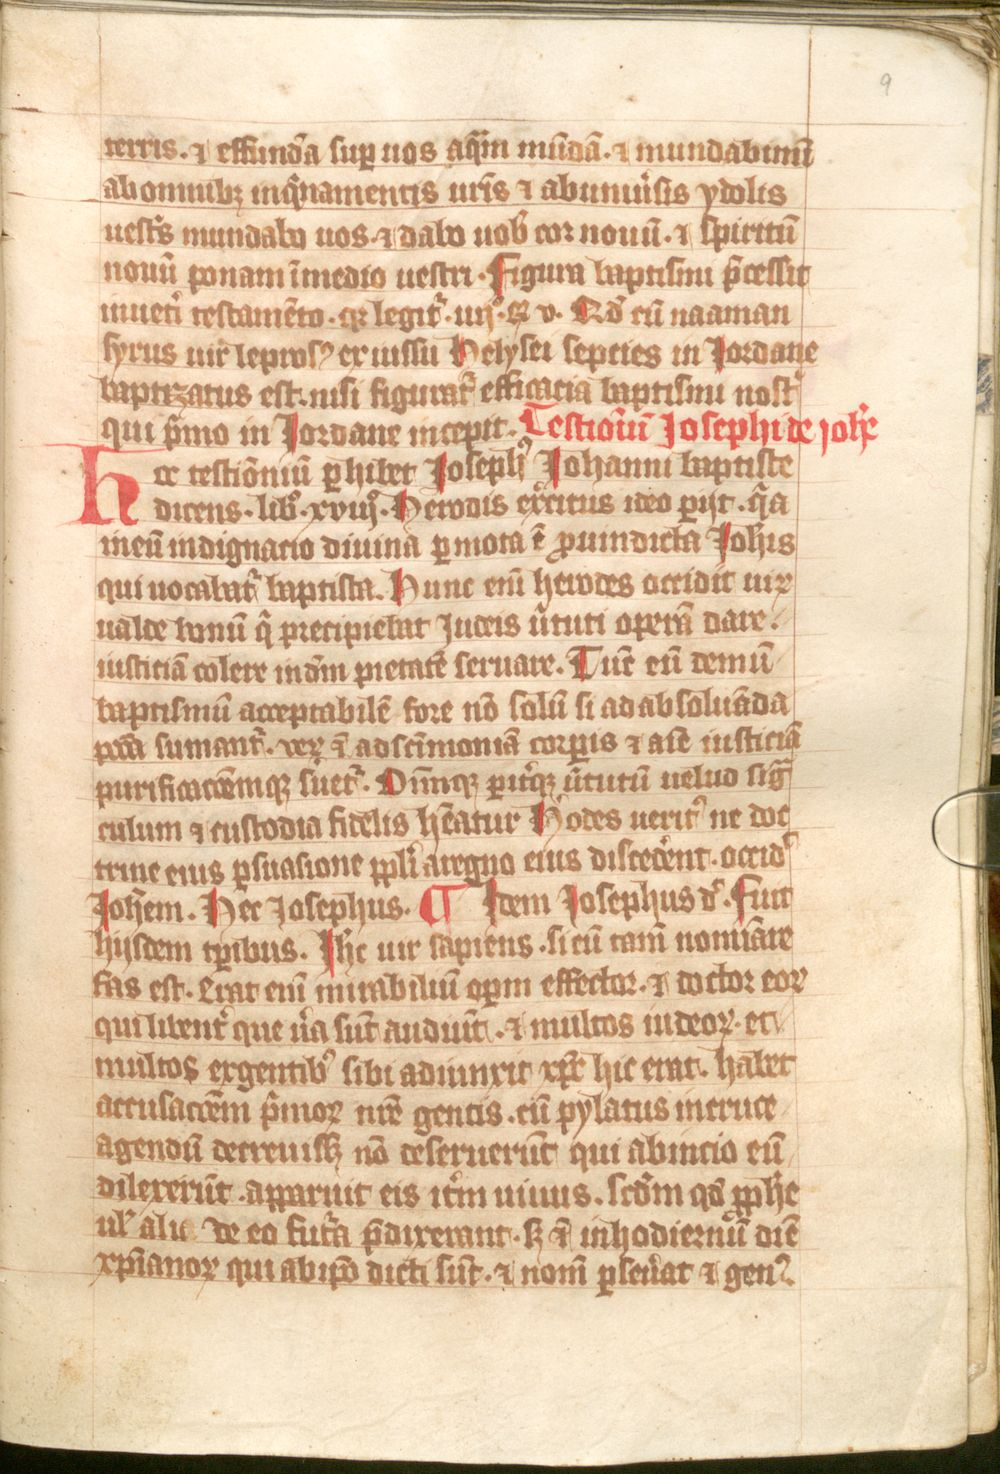 9
terris. ⁊ effundā sup uos aq̄m mūdā. ⁊ mundabimī
abomnibꝫ inq̄namentis ur̄is ⁊ abuniu̓sis ydolis
uest̓s mundabo uos. ⁊ dabo uob̓ cor nouū. ⁊ spiritū
nouū ponam īmedio uestri. Figura baptismi p̄cessit
inuet̓i testamēto. qꝛ legit̓. iiijº. R̄ v. Qd̓ cū naaman
syrus uir leprosꝰ ex iussu Helysei septies in Jordane
baptizatus est. nisi figurat̓ efficacia baptismi nost̓
qui p̄mo in Jordane incepit. Testioīuū Josephi de joh̓e
Hec testiōnium ꝑhibet Josephꝰ Johanni baptiste
dicens. lib̓. xviijº. Herodis ex̓citus ideo ꝑijt. q̄a
ineū indignacio diuina ꝑmota ē ꝓuindicta Joh̄is
qui uocabat̓ baptista. Hunc enī herodes occidit uiꝝ
ualde bonū q̄ precipiebat Judeis u̓tuti operā dare.
iusticiā colere indm̄ pietatē seruare. Tūc eū demū
baptismū acceptabilē fore nō solū si ad absoluēda
pcc̄a sumant̓. ueꝝ ⁊ adsc̄imoniā corꝑis ⁊ aīe iusticiā
purificacōemqꝫ su̓et̓. Om̄iqꝫ ꝑit̓qꝫ u̓tutū uelud siḡ
culum ⁊ custodia fidelis hēatur H̓odes ueritꝰ ne doc
trine eius ꝑsuasione ppl̓i aregno eius disced̓ent. occidꝰ
Joh̄em. Hec Josephus. ¶ Idem Josephus d̓. Fuit
hijsdem tꝑibus. Ih̄c uir sapiens. si eū tam̄ nomīare
fas est. Erat enī mirabiliū oꝑm effector. ⁊ doctor eoꝝ
qui libent̓ que u̓a sūt audiūt. ⁊ multos iudeoꝝ. et
multos exgentibꝰ sibi adiunxit xp̄c hic erat. habet
accusacōem p̄moꝝ nr̄e gentis. cū pylatus incruce
agendū decreuisꝫ nō deseruerūt qui abincio eū
dilexerūt. apparuit eis it̓m uiuus. scdm̄ qd̓ pph̄e
ul̓ alii de eo fut̓a p̄dixerant. sꝫ ⁊ inhodiernū diē
xp̄ianoꝝ qui abip̄o dicti sūt. ⁊ nom̄ ꝑseu̓at ⁊ genꝰ